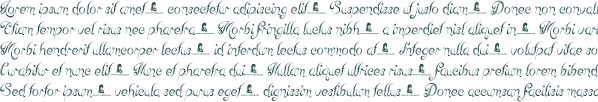 Lorem ipsum dolor sit amet consectetur adipiscing elit Suspendisse ut justo diam Donec non convall
Etiam tempor vel risus nec pharetra Morbi fringilla luctus nibh a imperdiet nisl aliquet in Morbi vari
Morbi hendrerit ullamcorper lectus id interdum lectus commodo at Integer nulla dui volutpat vitae so
Curabitur et nunc elit Nunc et pharetra dui Nullam aliquet ultrices risus Faucibus pretium lorem bibend
Sed tortor ipsum vehicula sed purus eget dignissim vestibulum tellus Donec accumsan facilisis massa